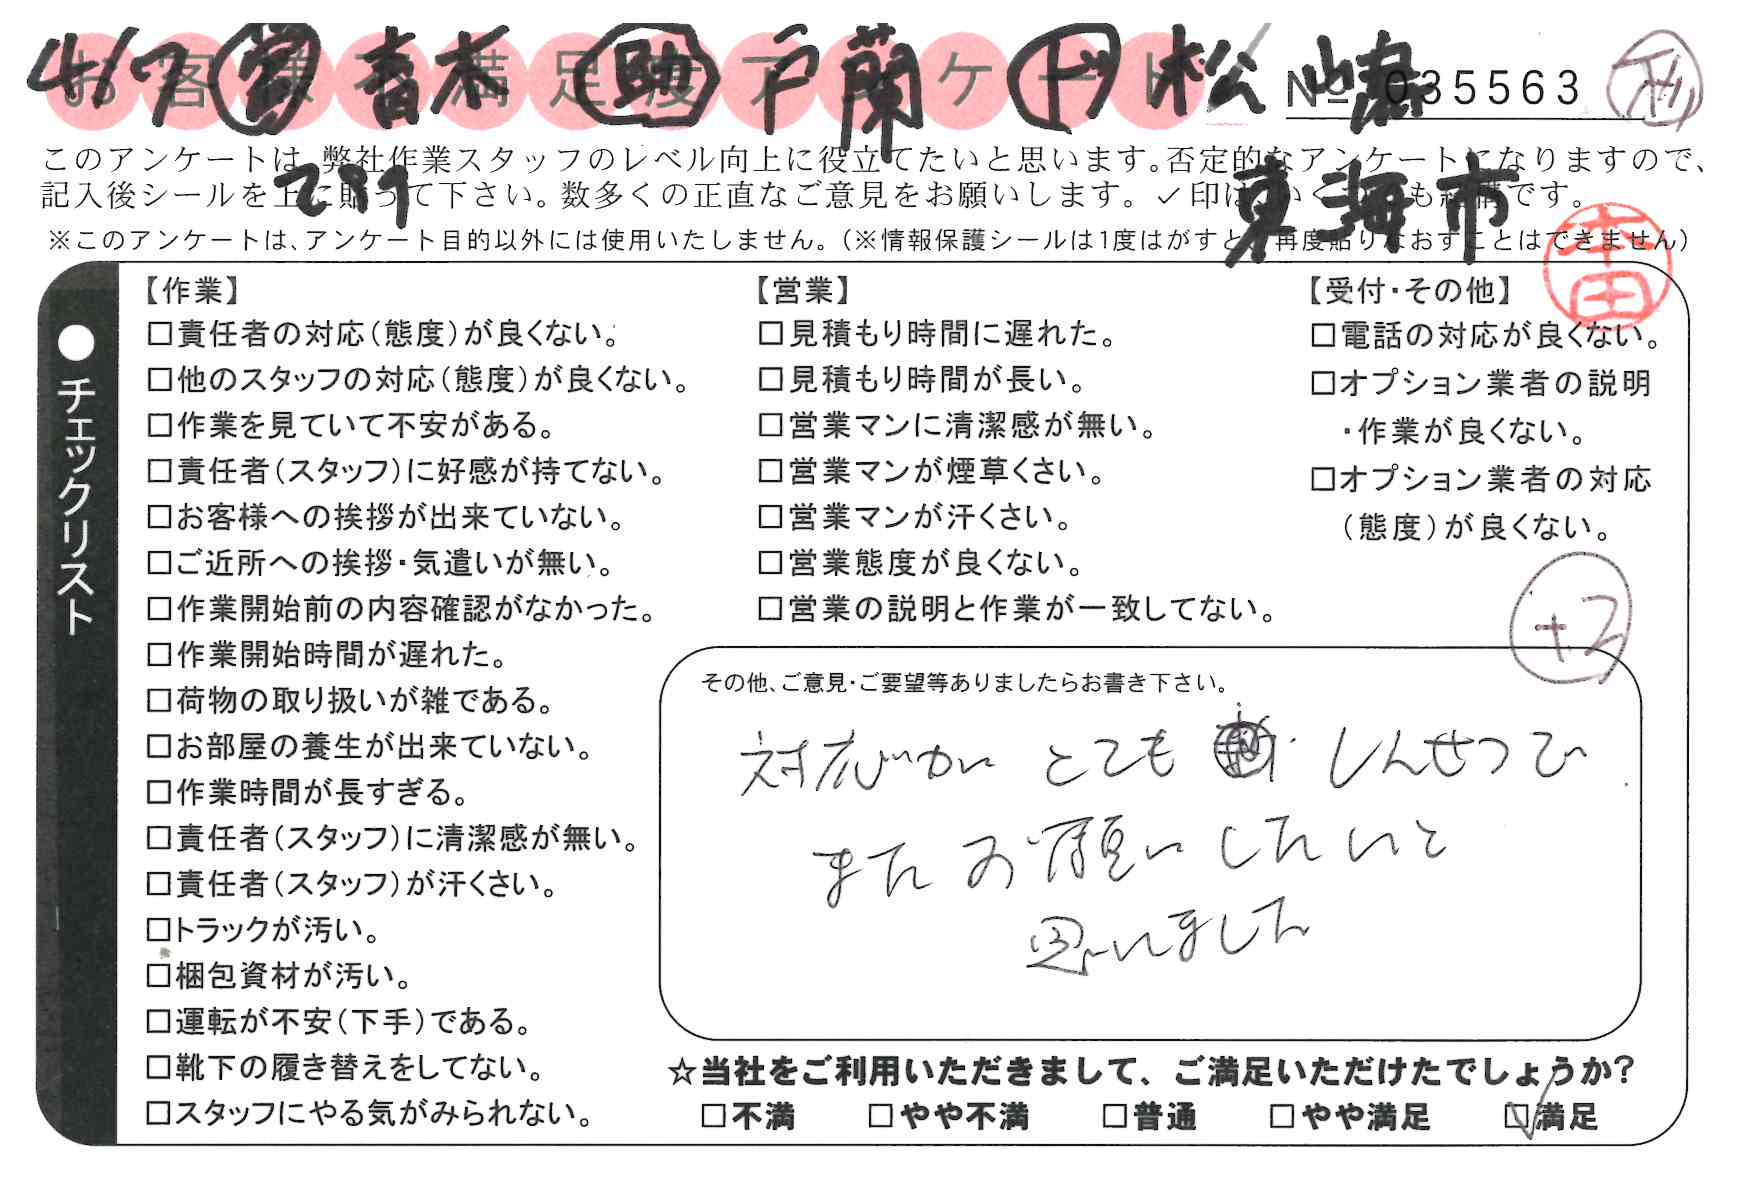 お客様不満足度アンケート
4/7 営 青木 助 戸蘭 ド 松
No 035563
このアンケートは、弊社作業スタッフのレベル向上に役立てたいと思います。否定的なアンケートになりますので、
記入後シールを上に貼って下さい。数多くの正直なご意見をお願いします。✓印はいくつでも結構です。
東海市
※このアンケートは、アンケート目的以外には使用いたしません。(※情報保護シールは1度はがすと、再度貼りなおすことはできません)
本田
●チェックリスト
【作業】
□責任者の対応(態度)が良くない。
□他のスタッフの対応(態度)が良くない。
□作業を見ていて不安がある。
□責任者(スタッフ)に好感が持てない。
□お客様への挨拶が出来ていない。
□ご近所への挨拶・気遣いが無い。
□作業開始前の内容確認がなかった。
□作業開始時間が遅れた。
□荷物の取り扱いが雑である。
□お部屋の養生が出来ていない。
□作業時間が長すぎる。
□責任者(スタッフ)に清潔感が無い。
□責任者(スタッフ)が汗くさい。
□トラックが汚い。
□梱包資材が汚い。
□運転が不安(下手)である。
□靴下の履き替えをしてない。
□スタッフにやる気がみられない。
【営業】
□見積もり時間に遅れた。
□見積もり時間が長い。
□営業マンに清潔感が無い。
□営業マンが煙草くさい。
□営業マンが汗くさい。
□営業態度が良くない。
□営業の説明と作業が一致してない。
【受付・その他】
□電話の対応が良くない。
□オプション業者の説明
・作業が良くない。
□オプション業者の対応
(態度)が良くない。
+3
その他、ご意見・ご要望等ありましたらお書き下さい。
対応がとても しんせつで
またお願いしたいと
思いました
☆当社をご利用いただきまして、ご満足いただけたでしょうか?
□不満 □やや不満 □普通 □やや満足 ☑満足